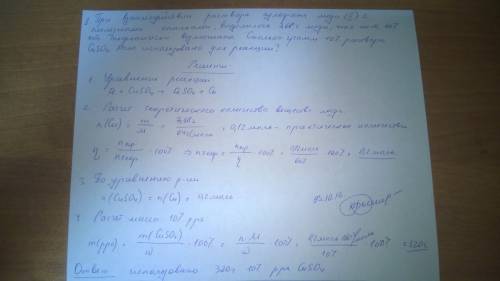 3. При взаимодействии раствора сульфата меди (II) с
железными опилками, выделилось 7,68г меди, что составляет 60%
от теоретически возможного. Сколько грамм 10% раствора
CuSO₄ было использовано для реакции?
Решение
1. Уравнение реакции
Fe + CuSO₄ → FeSO₄ + Cu
2. Расчет теоретического количества вещества меди
n(Cu) = m/M = 7,68г / 64г/моль = 0,12 моль - практическое количество
η = nпр/nтеор · 100% ⇒ nтеор = nпр/η · 100% = 0,12моль/60% · 100% = 0,2 моль
3. По уравнению р-ции
n(CuSO₄) = n(Cu) = 0,2 моль
4. Расчет массы 10% р-ра
m(р-ра) = m(CuSO₄)/ω · 100% = n·M/ω · 100% = 0,2моль·160г/моль / 10% · 100% = 320г
Ответ использовано 320г 10% р-ра CuSO₄